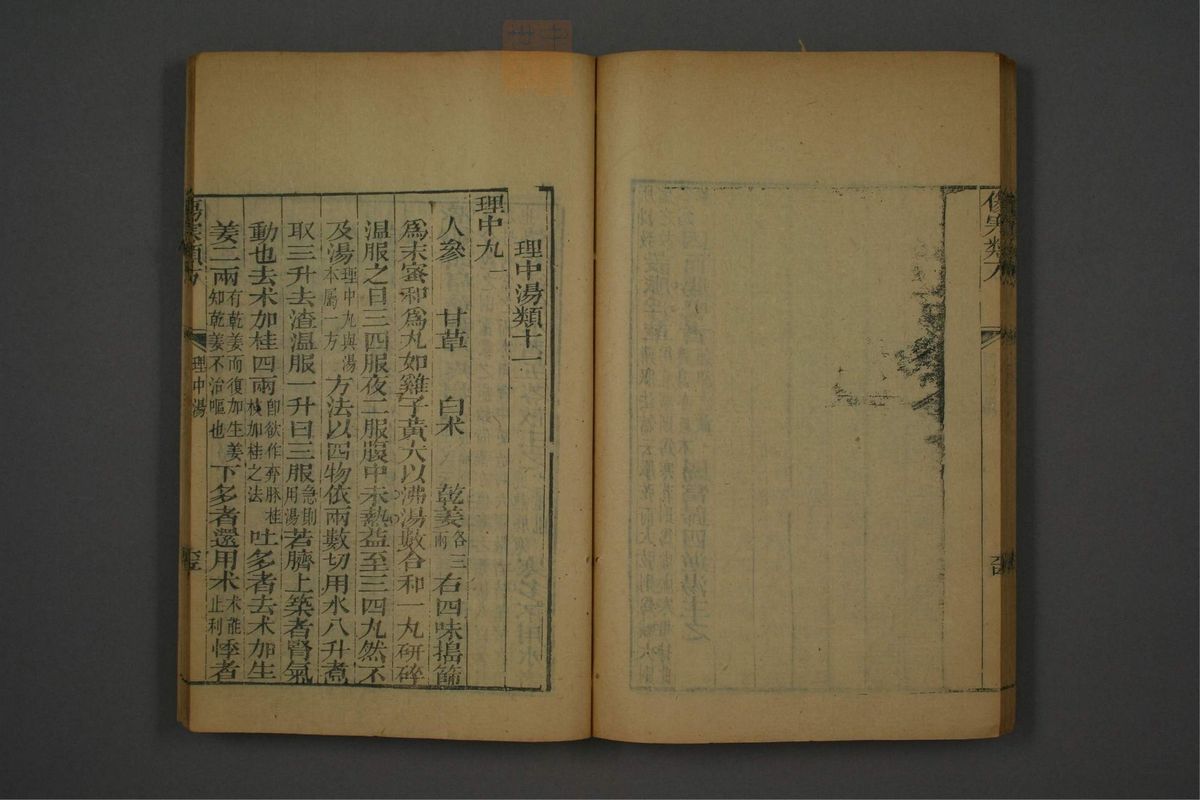 傷寒類方
理中湯類十一
理中丸一
人參 甘草 白术 乾姜各三兩 右四味搗篩
爲末蜜和爲丸如雞子黃大以沸湯數合和一丸研碎
溫服之日三四服夜二服腹中未熱益至三四丸然不
及湯理中丸與湯本屬一方方法以四物依兩數切用水八升煮
取三升去渣溫服一升日三服急則用湯若臍上築者腎氣
動也去术加桂四兩卽欲作奔豚桂枝加桂之法吐多者去术加生
姜二兩有乾姜而復加生姜知乾姜不治嘔也下多者還用术术能止利悸者
傷寒類方
理中湯